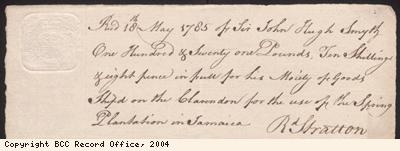 Rec'd 18th May 1785 of Sir John Hugh Smyth
One Hundred & Twenty one Pounds, Ten Shillings
& eight pence in full for his Moiety of Goods
Ship'd on the Clarendon for the use of the Spring
Plantation in Jamaica Rd Stratton
Copyright BCC Record Office, 2004